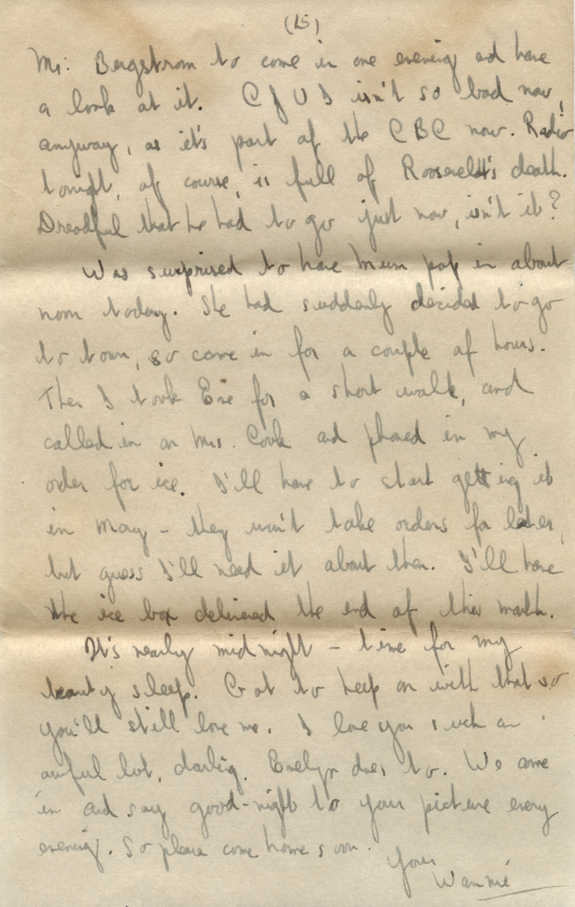 (15)
Mr. Bergstrom to come in one evening and have
a look at it. CJVI isn't so bad now,
anyway, as it's part of the CBC now. Radio
tonight, of course, is full of Roosevelt's death.
Dreadful that he had to go just now, isn't it?
Was surprised to have Mum pop in about
noon today. She had suddenly decided to go
to town, so came in for a couple of hours.
Then I took Eve for a short walk, and
called in on Mrs. Cook and phoned in my
order for ice. I'll have to start getting it
in May - they won't take orders for later,
but guess I'll need it about then. I'll have
the ice box delivered the end of this month.
It's nearly midnight - time for my
beauty sleep. Got to keep on with that so
you'll still love me. I love you such an
awful lot, darling. Evelyn does to. We come
in and say good-night to your picture every
evening. So please come home soon.
Your